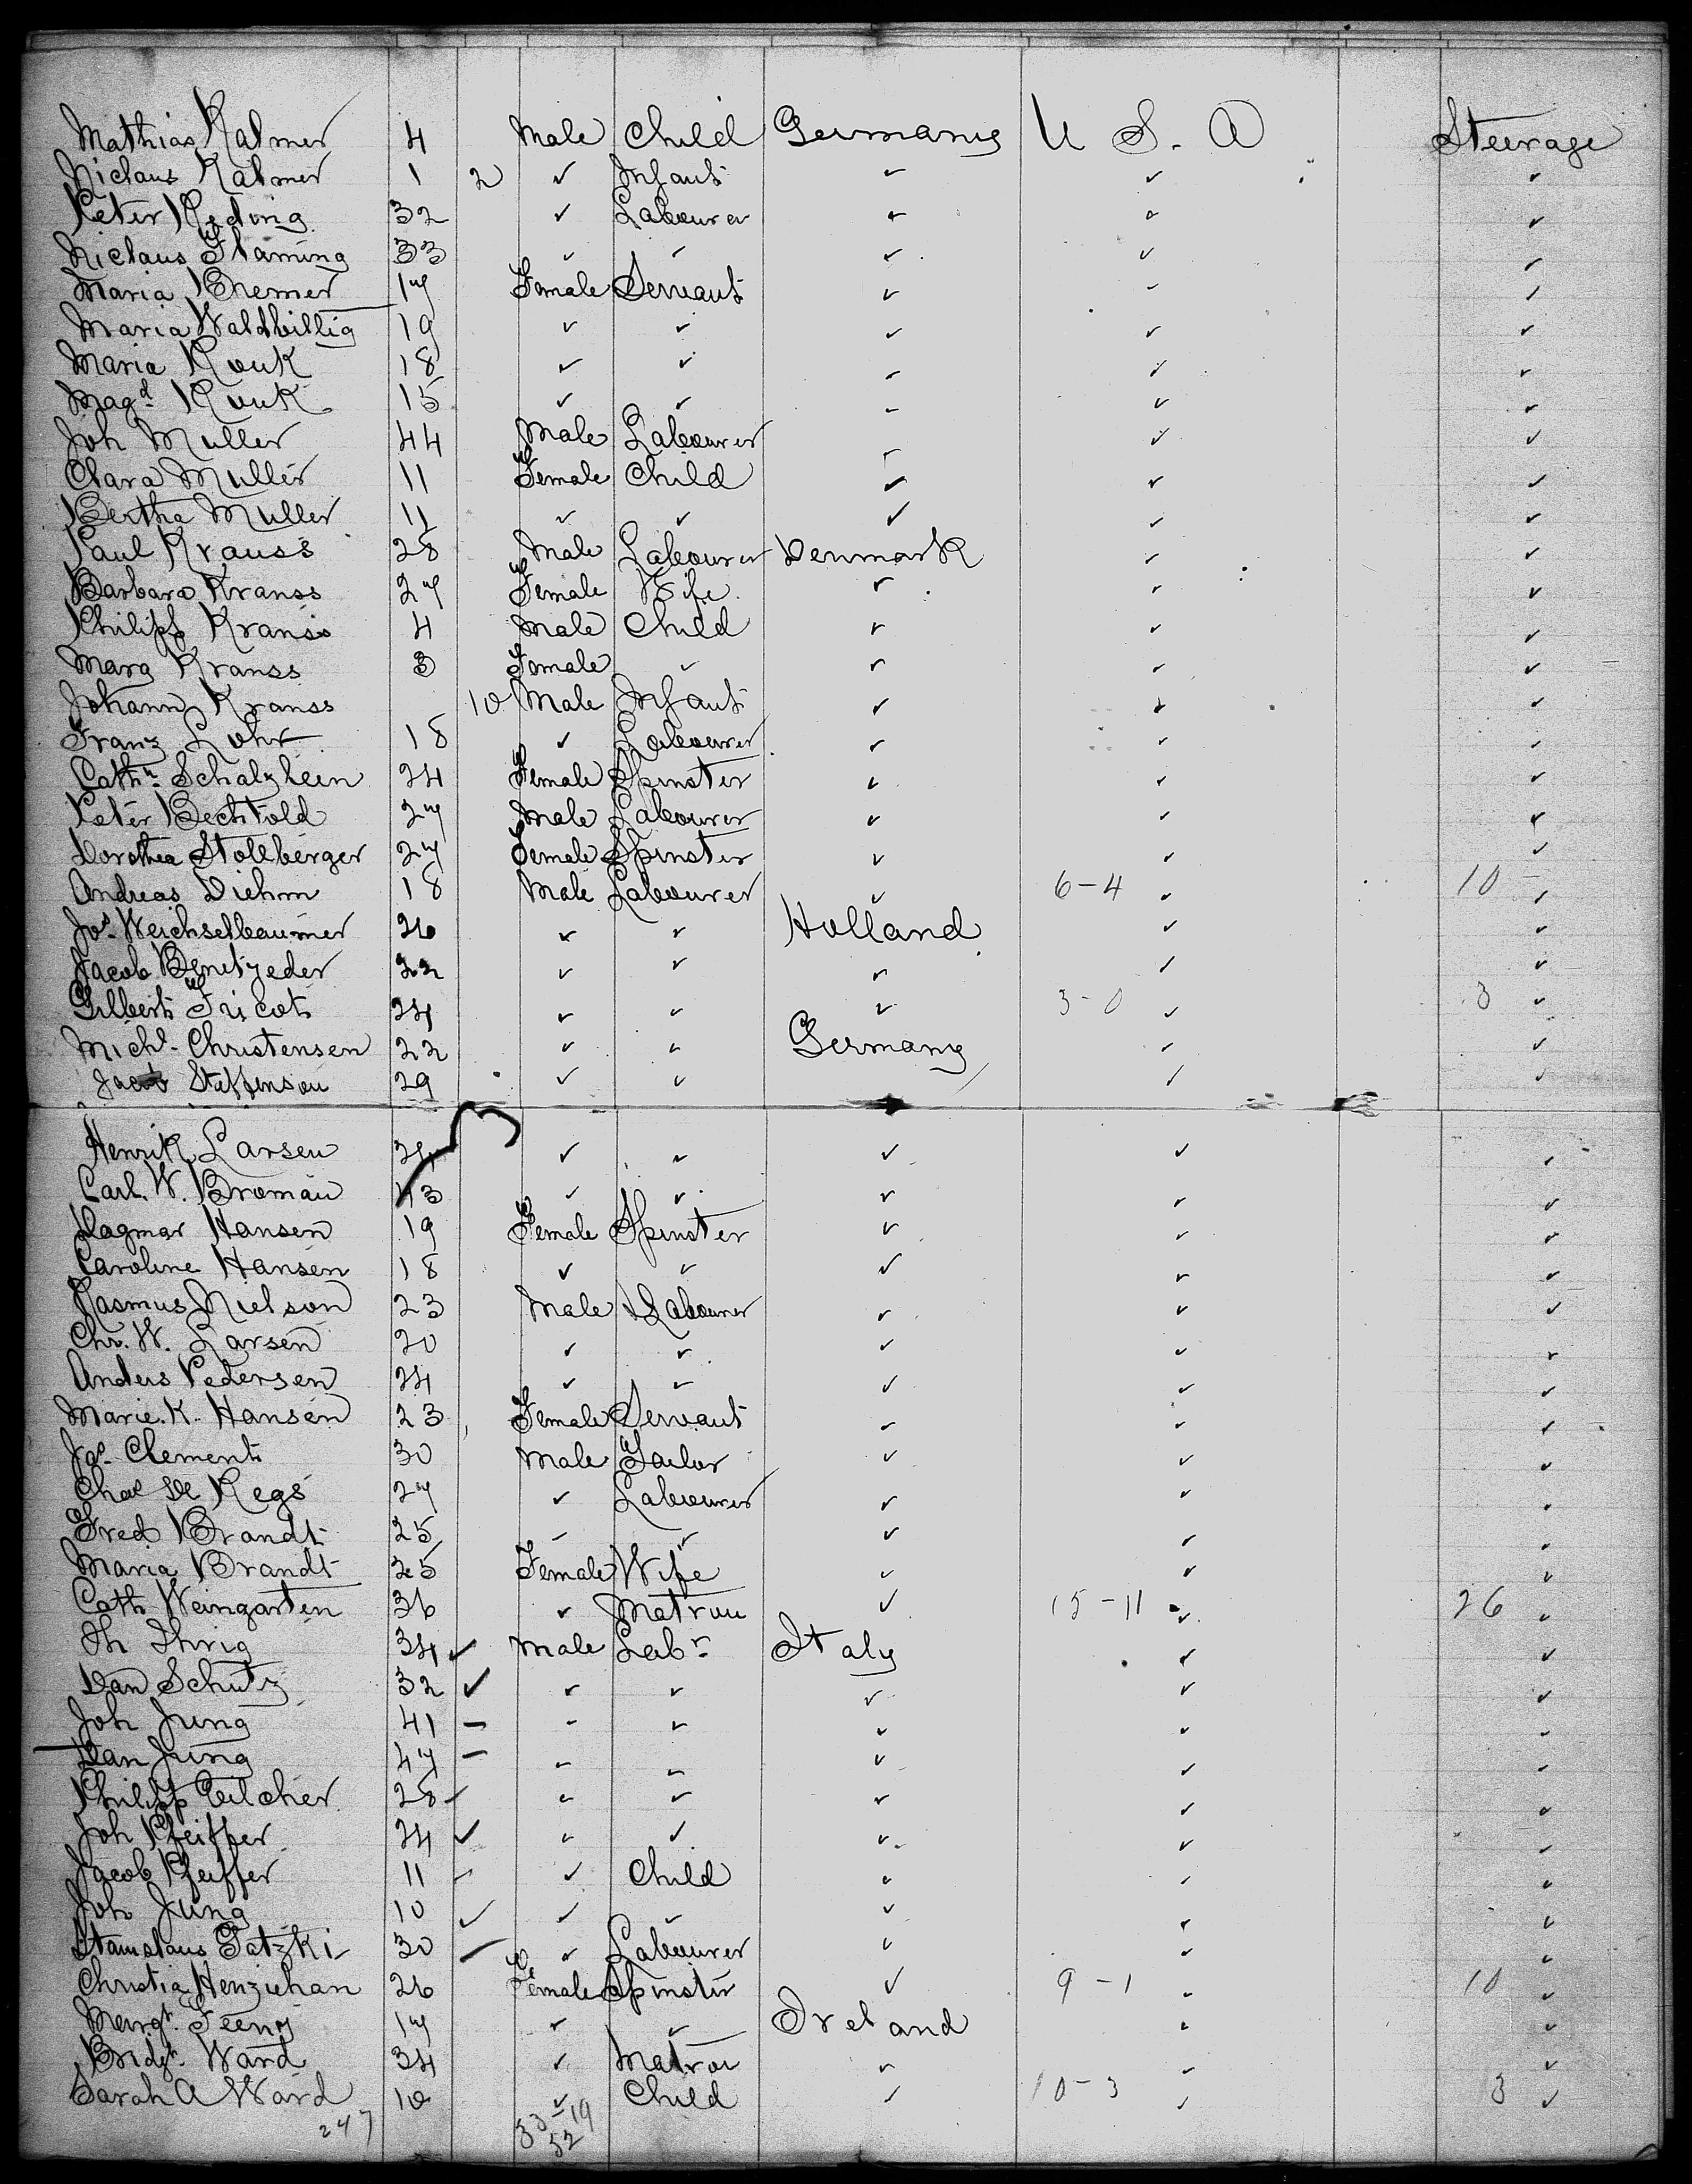 Mathias Kalmer 4 Male Child Germany U S. A Steerage
Niclaus Kalmer 1 2 ✓ Infant ✓ ✓ ✓
Peter Reding 32 ✓ Labourer ✓ ✓ ✓
Niclaus Flaming 33 ✓ ✓ ✓ ✓ ✓
Maria Bremer 17 Female Servant ✓ ✓ ✓
Maria Waldbillig 19 ✓ ✓ ✓ ✓ ✓
Maria Kouk 18 ✓ ✓ ✓ ✓ ✓
Magd Kouk 15 ✓ ✓ ✓ ✓ ✓
Joh Muller 44 Male Labourer ✓ ✓ ✓
Clara Muller 11 Female Child ✓ ✓ ✓
Bertha Muller 11 ✓ ✓ ✓ ✓ ✓
Paul Krauss 28 Male Labourer Denmark ✓ ✓
Barbara Kranss 27 Female Wife ✓ ✓ ✓
Philipp Kranss 4 Male Child ✓ ✓ ✓
Marg Kranss 3 Female ✓ ✓ ✓ ✓
Johann Kranss 10 Male Infant ✓ ✓ ✓
Franz Lohr 18 ✓ Labourer ✓ ✓ ✓
Cathn Schatzlein 24 Female Spinster ✓ ✓ ✓
Peter Bechtold 27 Male Labourer ✓ ✓ ✓
Dorothea Stollberger 27 Female Spinster ✓ ✓ ✓
Andreas Diehm 18 Male Labourer ✓ 6-4 ✓ 10 ✓
Jos. Weichselbaumer 26 ✓ ✓ Holland ✓ ✓
Jacob Benetzeder 22 ✓ ✓ ✓ ✓ ✓
Gilbert Fricot 24 ✓ ✓ ✓ 3-0 ✓ 3 ✓
Michl. Christensen 22 ✓ ✓ Germany ✓ ✓
Jacob Steffenson 29 ✓ ✓ ✓ ✓
Henrik Larsen 24 ✓ ✓ ✓ ✓ ✓
Carl. W. Broman 43 ✓ ✓ ✓ ✓ ✓
Dagmar Hansen 19 Female Spinster ✓ ✓ ✓
Caroline Hansen 18 ✓ ✓ ✓ ✓ ✓
Rasmus Nielson 23 Male Labourer ✓ ✓ ✓
Chr. W. Larsen 20 ✓ ✓ ✓ ✓ ✓
Anders Pedersen 24 ✓ ✓ ✓ ✓ ✓
Marie. K. Hansen 23 Female Servant ✓ ✓ ✓
Jas. Clement 30 Male Tailor ✓ ✓ ✓
Chas De Regs 27 ✓ Labourer ✓ ✓ ✓
Fred Brandt 25 ✓ ✓ ✓ ✓ ✓
Maria Brandt 25 Female Wife ✓ ✓ ✓
Cath Weingarten 36 ✓ Matron ✓ 15-11 ✓ 26 ✓
Th Ihrig 34 ✓ Male Labr Italy ✓ ✓
Dan Schutz 32 ✓ ✓ ✓ ✓ ✓ ✓
Joh Jung 41 – ✓ ✓ ✓ ✓ ✓
Dan Jung 47 – ✓ ✓ ✓ ✓ ✓
Philipp 28 ✓ ✓ ✓ ✓ ✓ ✓
Joh Pfeiffer 24 ✓ ✓ ✓ ✓ ✓ ✓
Jacob Pfeiffer 11 – ✓ Child ✓ ✓ ✓
Joh Jung 10 ✓ ✓ ✓ ✓ ✓ ✓
Stanislaus Tatzki 30 – ✓ Labourer ✓ ✓ ✓
Christia Henziehan 26 Female Spinster ✓ 9-1 ✓ 10 ✓
Margt. Feeny 17 ✓ ✓ Ireland ✓ ✓
Bridgt. Ward 34 ✓ Matron ✓ ✓ ✓
Sarah A Ward 10 ✓ Child ✓ 10-3 ✓ 3 ✓
247 33-19
52